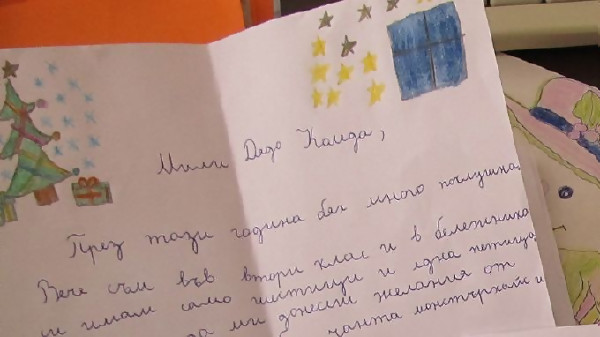 Мили Дядо Коледа,
През тази година бях много послушна.
Вече съм във втори клас и в бележника
си имам само шестици и една петица.
да ми донесеш желания от
чанта монстърхай и